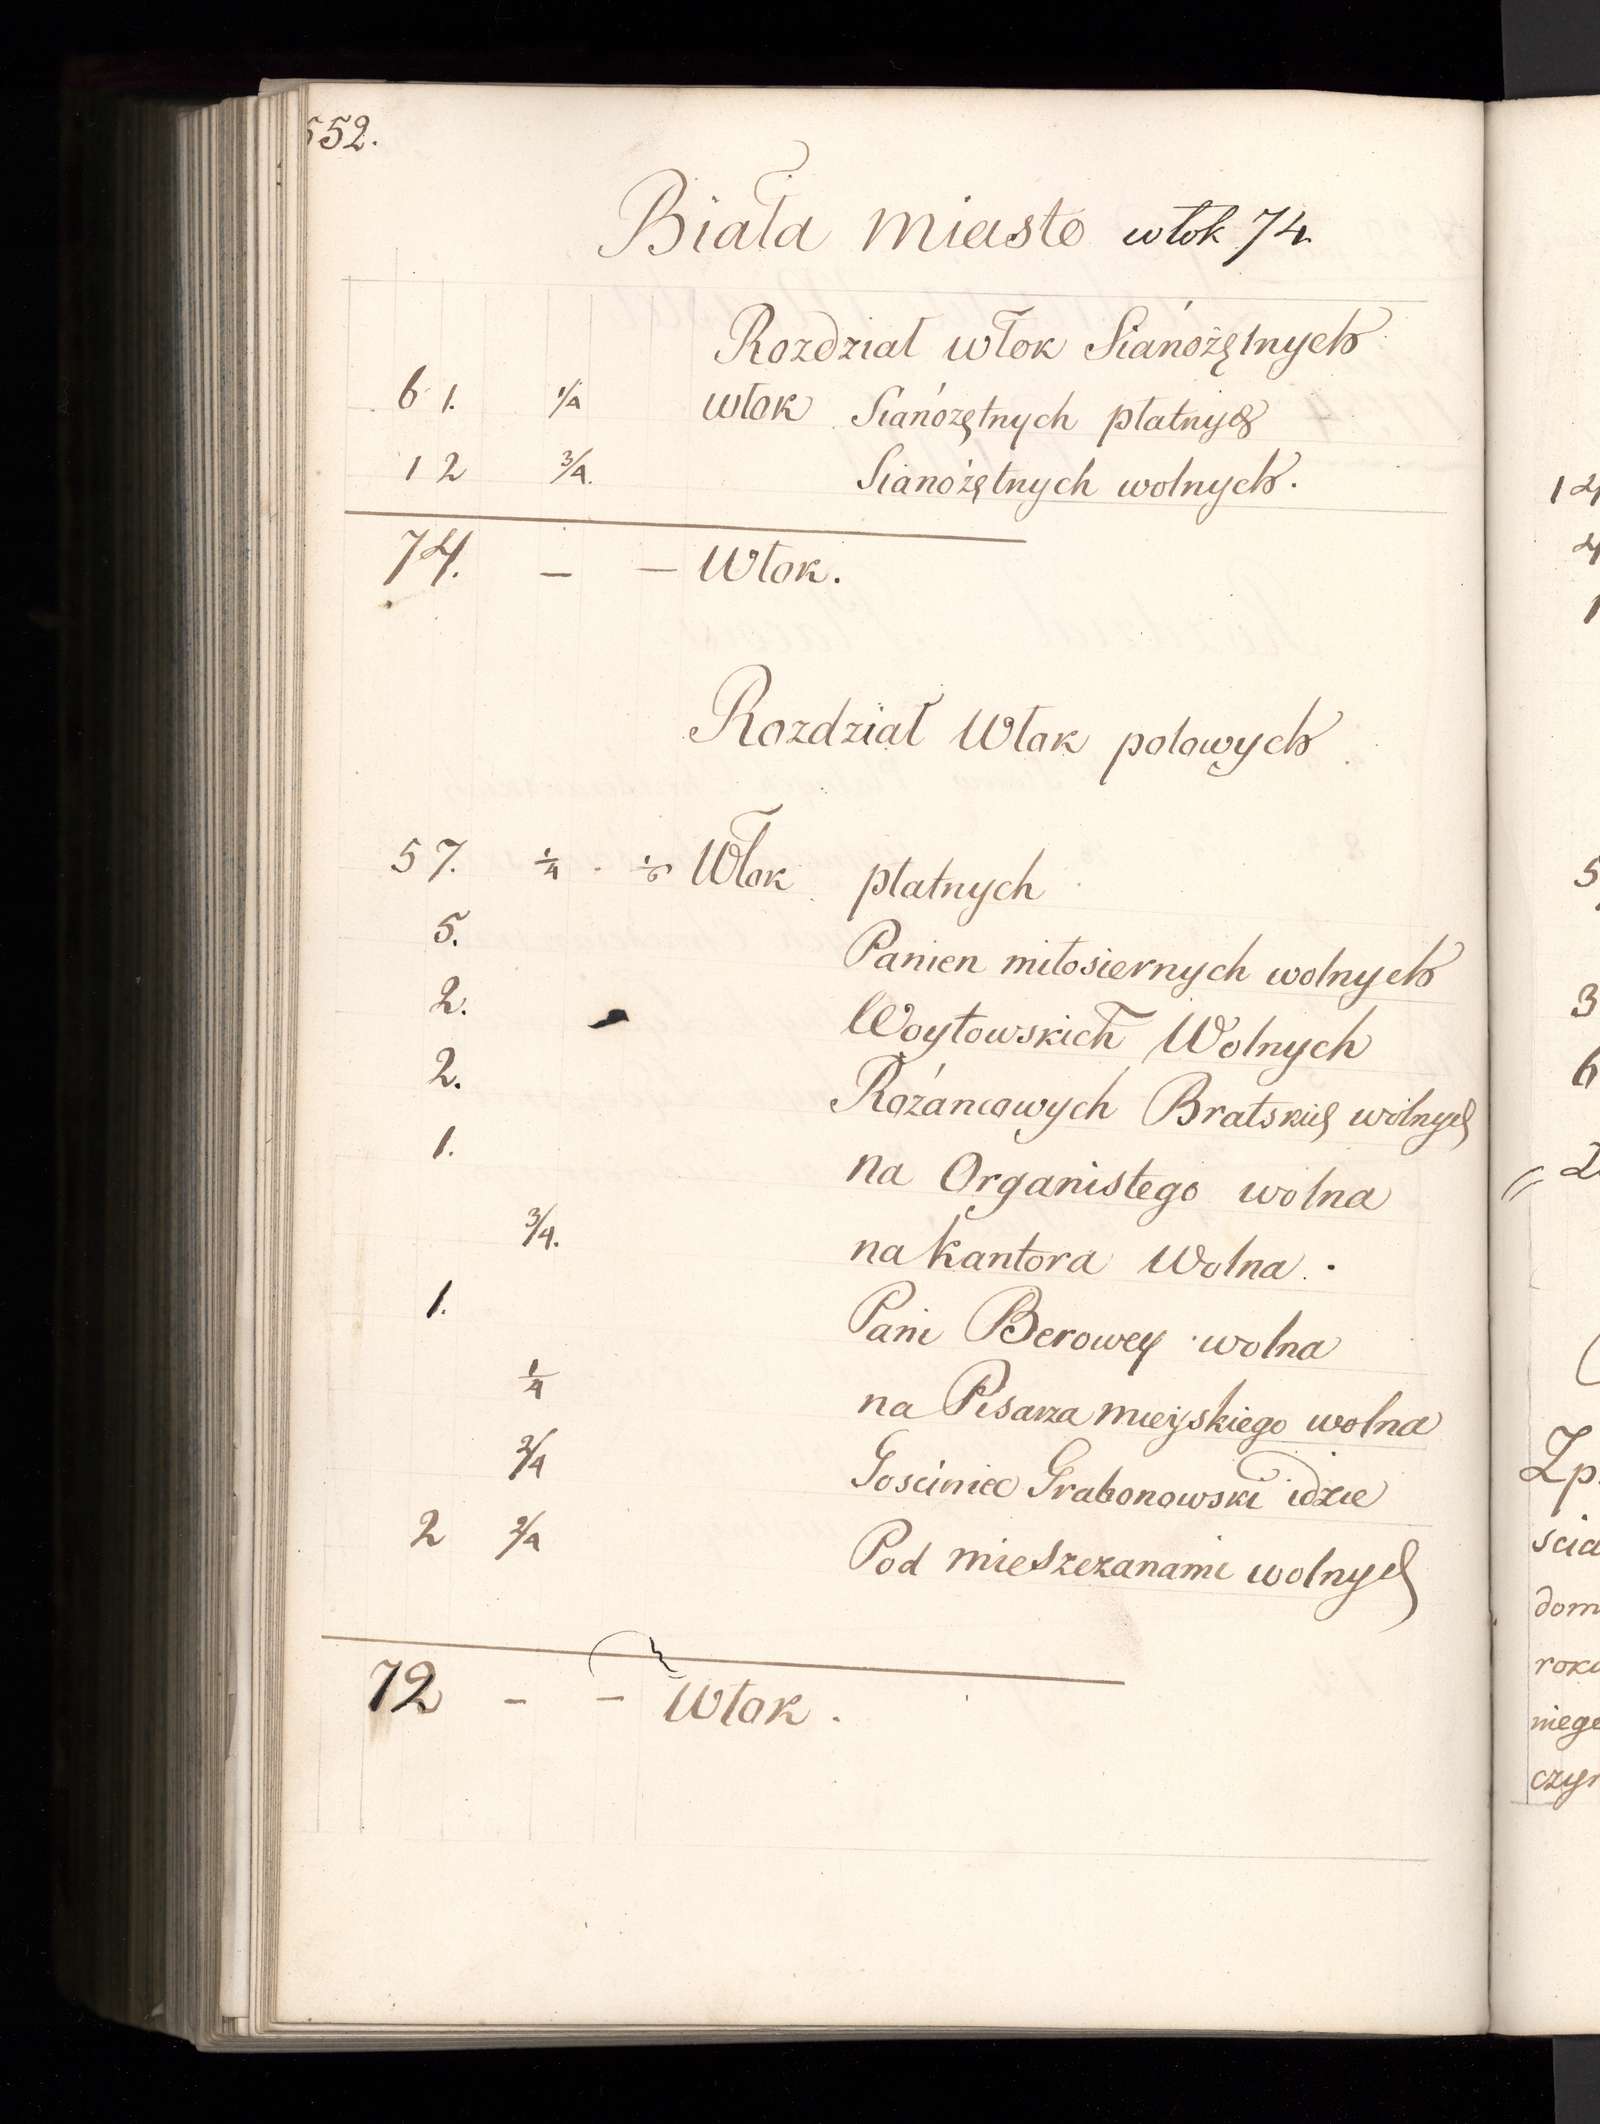 552.
Biała miasto włok 74.
Rozdział włok Sianożętnych
61. 1/4 włok Sianożętnych płatnych
12 3/4. Sianożętnych wolnych.
74. — — Włok.
Rozdział Włok polowych
57. 1/4 1/6 Włok płatnych
5. Panien miłosiernych wolnych
2. Woytowskich Wolnych
2. Rożancowych Bratskich wolnych
1. na Organistego wolna
3/4. na kantora Wolna.
1. Pani Berowey wolna
1/4 na Pisarza mieyskiego wolna
2/4 Gosciniec Grabonowski idzie
2 2/4 Pod mieszczanami wolnych
72 — — Włok.
14
4
1
5
3
6
Zp.
scia
dom
roku
niego
czyn